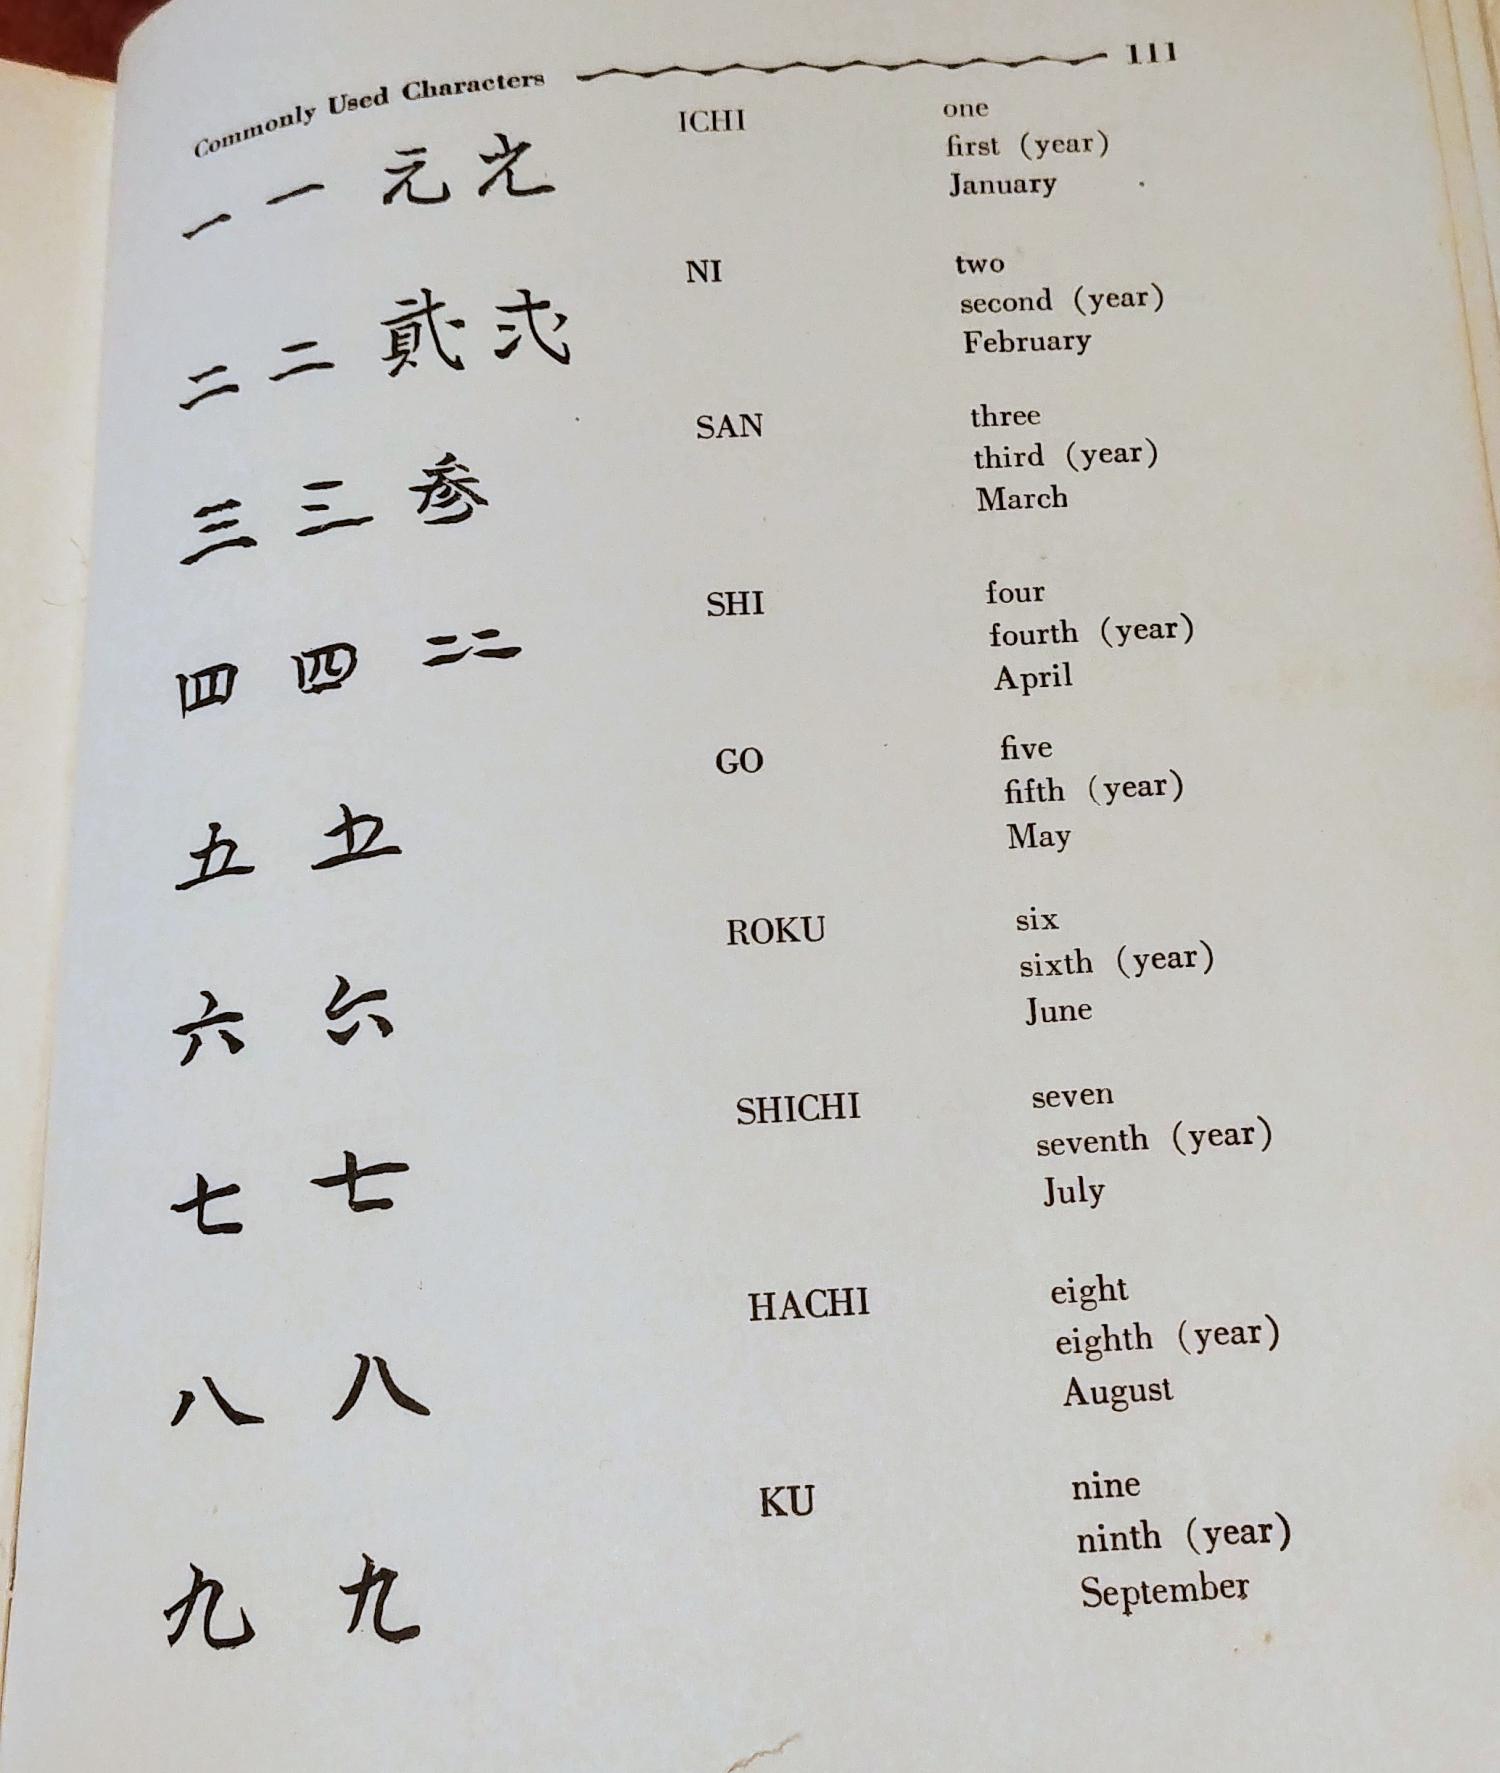 Commonly Used Characters 111
一 一 元 元 ICHI one
first (year)
January
二 二 貳 弍 NI two
second (year)
February
三 三 参 SAN three
third (year)
March
四 四 二二 SHI four
fourth (year)
April
五 五 GO five
fifth (year)
May
六 六 ROKU six
sixth (year)
June
七 七 SHICHI seven
seventh (year)
July
八 八 HACHI eight
eighth (year)
August
九 九 KU nine
ninth (year)
September